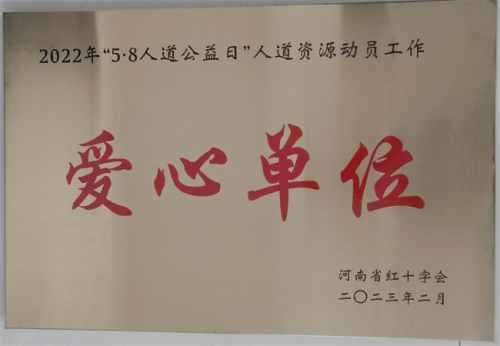 2022年“5·8人道公益日”人道资源动员工作
爱心单位
河南省红十字会
二〇二三年二月